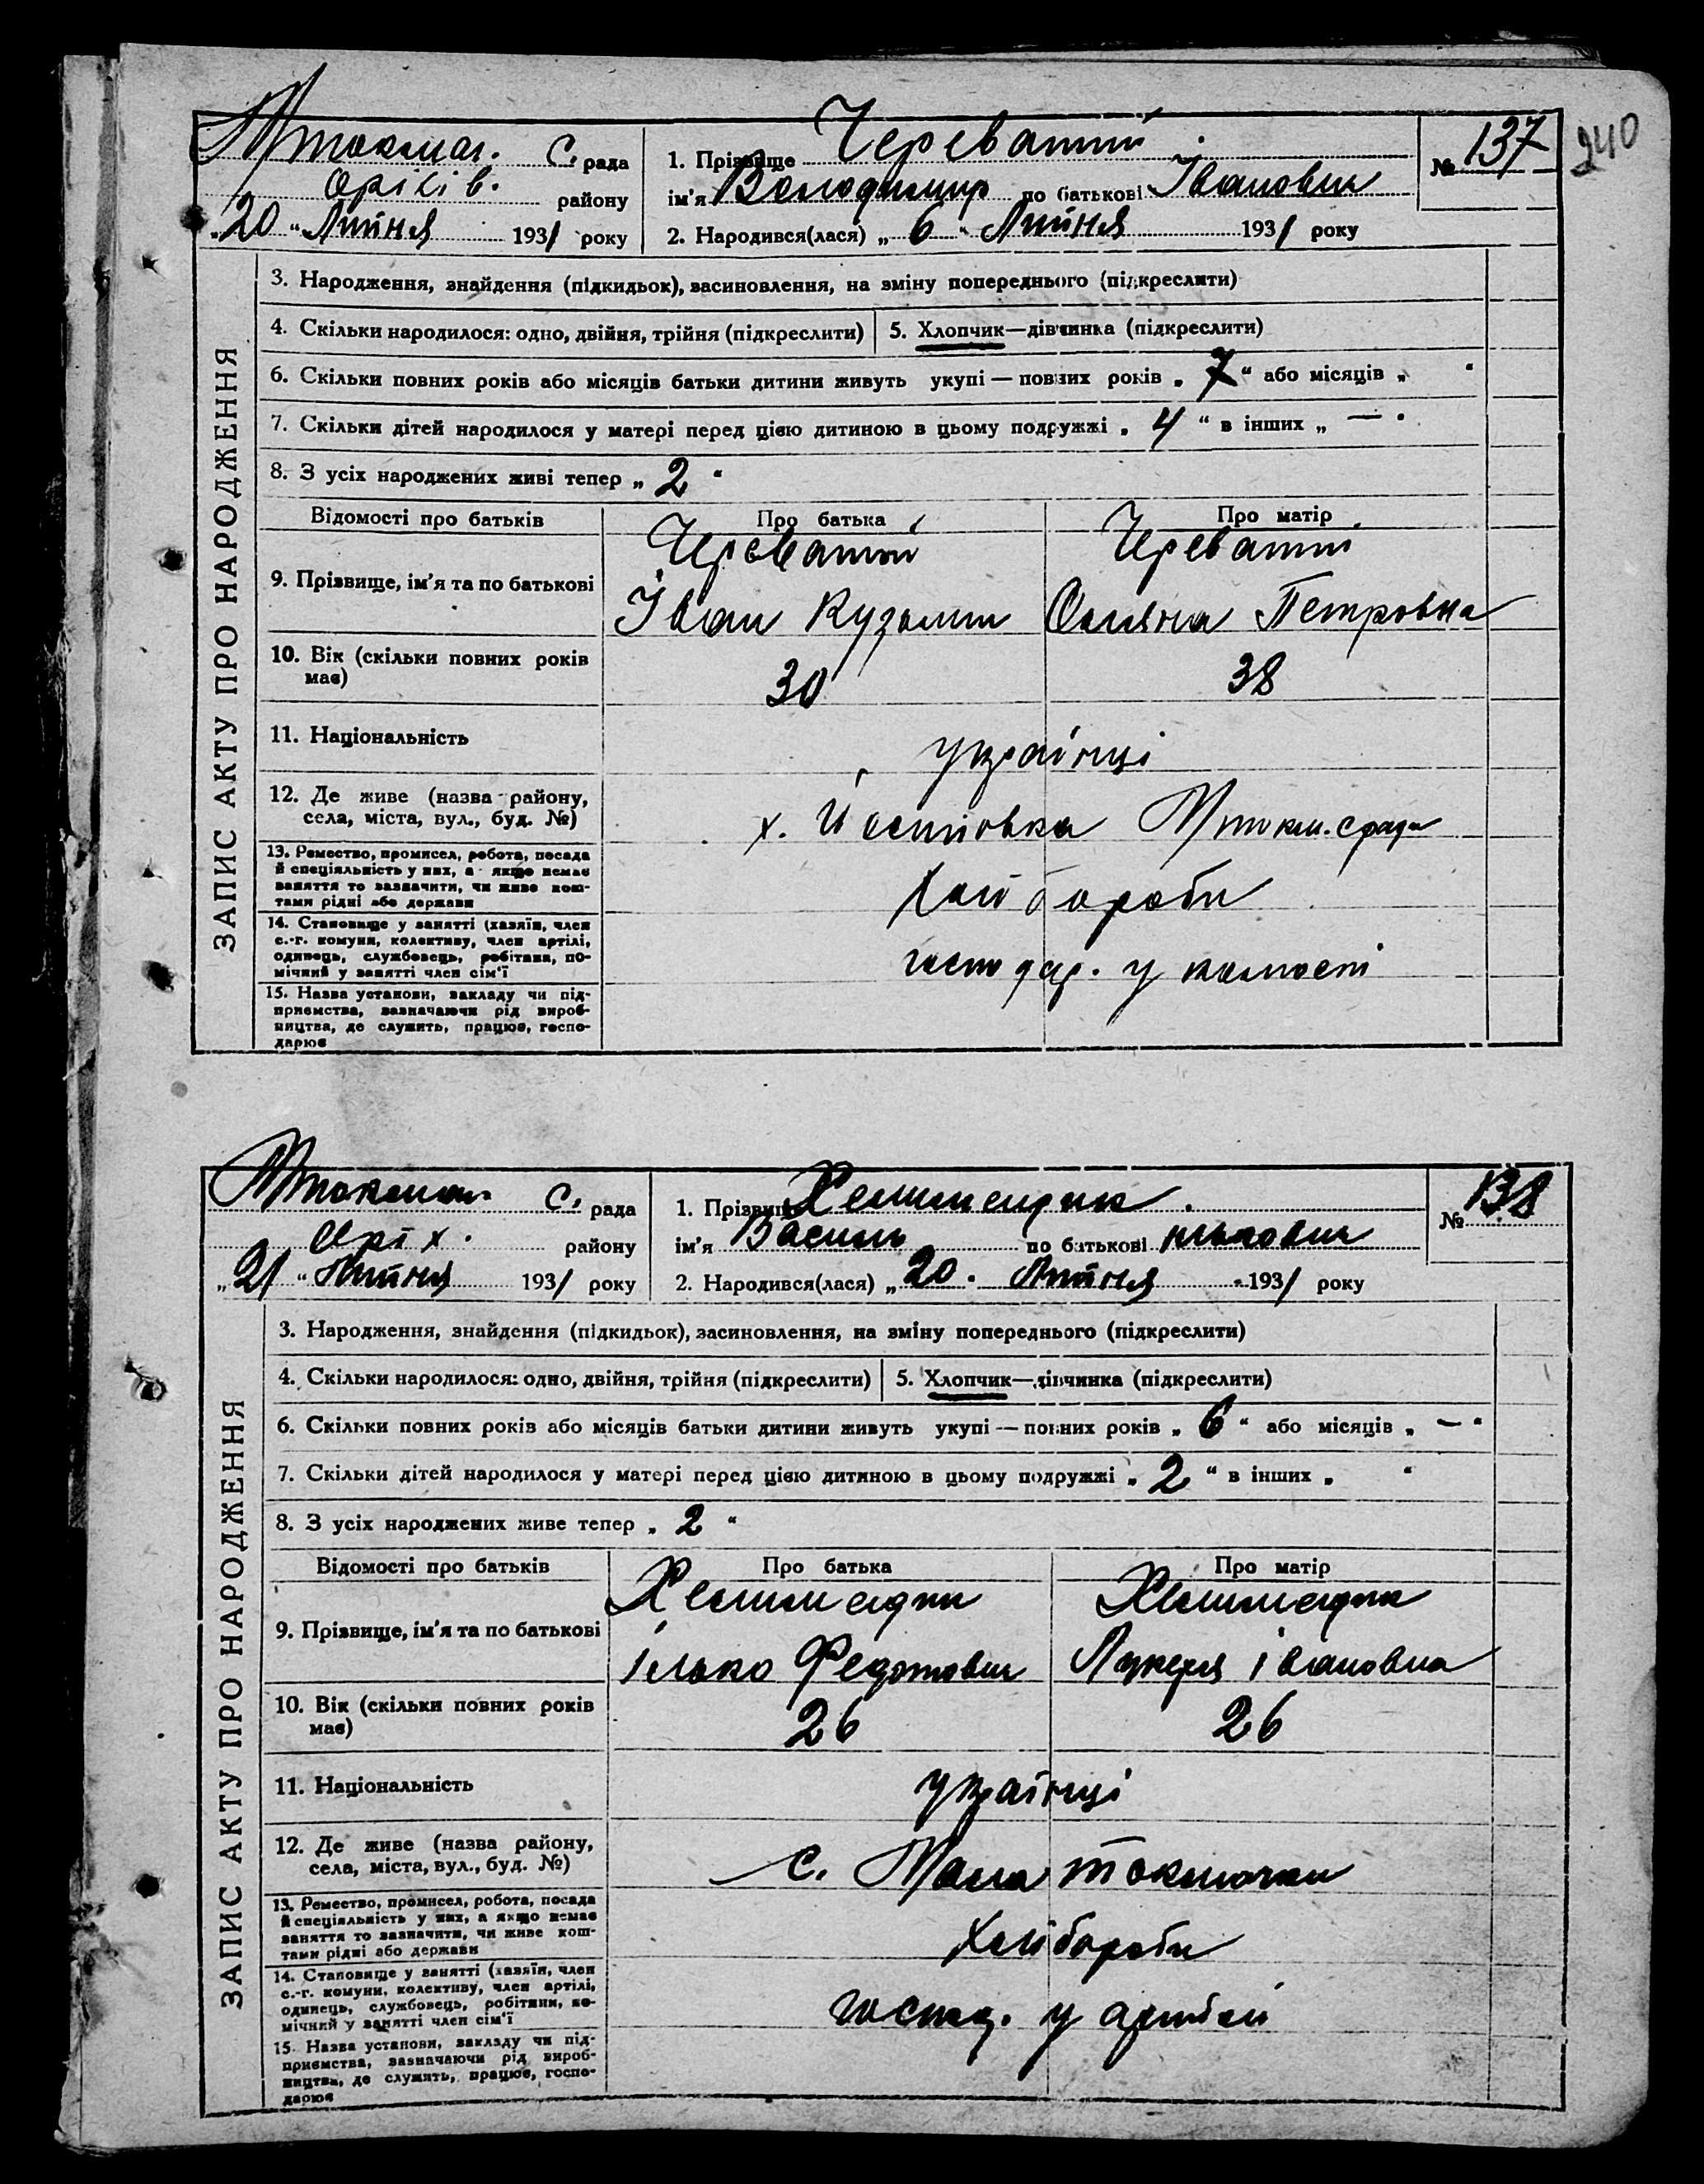 240
Мтокмач. С. рада
Оріхів. району
„20“ Липня 1931 року
1. Прізвище Череватий
ім'я Володимир по батькові Іванович
2. Народився(лася) „6“ Липня 1931 року
№ 137
ЗАПИС АКТУ ПРО НАРОДЖЕННЯ
3. Народження, знайдення (підкидьок), засиновлення, на зміну попереднього (підкреслити)
4. Скільки народилося: одно, двійня, трійня (підкреслити)
5. Хлопчик—дівчинка (підкреслити)
6. Скільки повних років або місяців батьки дитини живуть укупі — повних років „7“ або місяців „ “
7. Скільки дітей народилося у матері перед цією дитиною в цьому подружжі „4“ в інших „—“
8. З усіх народжених живі тепер „2“
Відомості про батьків
Про батька
Про матір
9. Прізвище, ім'я та по батькові
Череватий
Іван Кузьмич
Череваті
Петровна
10. Вік (скільки повних років
має)
30
38
11. Національність
українці
12. Де живе (назва району,
села, міста, вул., буд. №)
х. Мтокм. срада
13. Ремество, промисел, робота, посада
й спеціяльність у них, а якщо немає
заняття то зазначити, чи живе кош-
тами рідні або держави
Хлібороби
14. Становище у занятті (хазяїн, член
с.-г. комуни, колективу, член артілі,
одинець, службовець, робітник, по-
мічний у занятті член сім'ї
господар. у
15. Назва установи, закладу чи під-
приємства, зазначаючи рід вироб-
ництва, де служить, працює, госпо-
дарює
Мтокмач. С. рада
Оріх. району
„21“ Липня 1931 року
1. Прізвище
ім'я Василь по батькові ількович
2. Народився(лася) „20. Липня 1931 року
№ 138
ЗАПИС АКТУ ПРО НАРОДЖЕННЯ
3. Народження, знайдення (підкидьок), засиновлення, на зміну попереднього (підкреслити)
4. Скільки народилося: одно, двійня, трійня (підкреслити)
5. Хлопчик—дівчинка (підкреслити)
6. Скільки повних років або місяців батьки дитини живуть укупі — повних років „6“ або місяців „—“
7. Скільки дітей народилося у матері перед цією дитиною в цьому подружжі „2“ в інших „ “
8. З усіх народжених живе тепер „2“
Відомості про батьків
Про батька
Про матір
9. Прізвище, ім'я та по батькові
ілько Федотович
Лукеря івановна
10. Вік (скільки повних років
має)
26
26
11. Національність
українці
12. Де живе (назва району,
села, міста, вул., буд. №)
с. Мала Токмачка
13. Ремество, промисел, робота, посада
й спеціяльність у них, а якщо немає
заняття то зазначити, чи живе кош-
тами рідні або держави
Хлібороби
14. Становище у занятті (хазяїн, член
с.-г. комуни, колективу, член артілі,
одинець, службовець, робітник, по-
мічний у занятті член сім'ї
господ. у артілі
15. Назва установи, закладу чи під-
приємства, зазначаючи рід вироб-
ництва, де служить, працює, госпо-
дарює